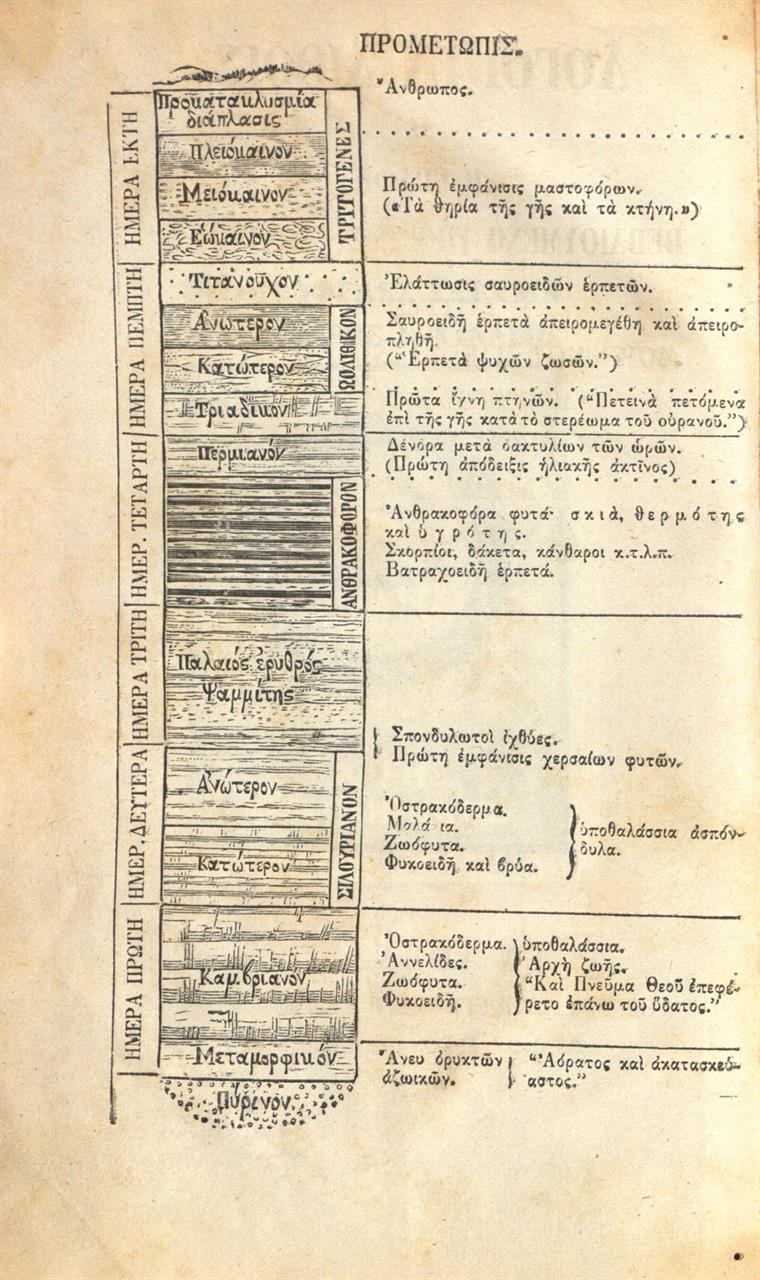 ΠΡΟΜΕΤΩΠΙΣ.
ΗΜΕΡΑ ΕΚΤΗ
Προκατακλυσμία
διάπλασις
Πλειόκαινον
Μειόκαινον
Εώκαινον
ΤΡΙΤΟΓΕΝΕΣ
Ἄνθρωπος.
Πρώτη ἐμφάνισις μαστοφόρων.
(«Τὰ θηρία τῆς γῆς καὶ τὰ κτήνη.»)
ΗΜΕΡΑ ΠΕΜΠΤΗ
Τιτανοῦχον
Ἀνώτερον
Κατώτερον
Τριαδικόν
ΩΟΛΙΘΙΚΟΝ
Ἐλάττωσις σαυροειδῶν ἑρπετῶν.
Σαυροειδῆ ἑρπετὰ ἀπειρομεγέθη καὶ ἀπειρο-
πληθῆ.
(“Ἑρπετὰ ψυχῶν ζωσῶν.”)
Πρῶτα ἴχνη πτηνῶν. (“Πετεινὰ πετόμενα
ἐπὶ τῆς γῆς κατὰ τὸ στερέωμα τοῦ οὐρανοῦ.”)
ΗΜΕΡ. ΤΕΤΑΡΤΗ
Περμιανόν
ΑΝΘΡΑΚΟΦΟΡΟΝ
Δένδρα μετὰ δακτυλίων τῶν ὡρῶν.
(Πρώτη ἀπόδειξις ἡλιακῆς ἀκτῖνος)
Ἀνθρακοφόρα φυτά· σκιὰ, θερμότης
καὶ ὑγρότης.
Σκορπίοι, δάκετα, κάνθαροι κ.τ.λ.π.
Βατραχοειδῆ ἑρπετά.
ΗΜΕΡΑ ΤΡΙΤΗ
Παλαιός ἐρυθρός
Ψαμμίτης
Σπονδυλωτοὶ ἰχθύες.
Πρώτη ἐμφάνισις χερσαίων φυτῶν.
ΗΜΕΡ. ΔΕΥΤΕΡΑ
Ἀνώτερον
Κατώτερον
ΣΙΛΟΥΡΙΑΝΟΝ
Ὀστρακόδερμα.
Μαλάκια.
Ζωόφυτα.
Φυκοειδῆ καὶ βρύα.
ὑποθαλάσσια ἀσπόν-
δυλα.
ΗΜΕΡΑ ΠΡΩΤΗ
Καμβριανόν
Μεταμορφικόν
Πύρινον
Ὀστρακόδερμα.
Ἀννελίδες.
Ζωόφυτα.
Φυκοειδῆ.
ὑποθαλάσσια.
Ἀρχὴ ζωῆς.
“Καὶ Πνεῦμα Θεοῦ ἐπεφέ-
ρετο ἐπάνω τοῦ ὕδατος.”
Ἄνευ ὀρυκτῶν
ἀζωικῶν.
“Ἀόρατος καὶ ἀκατασκεύ-
αστος.”